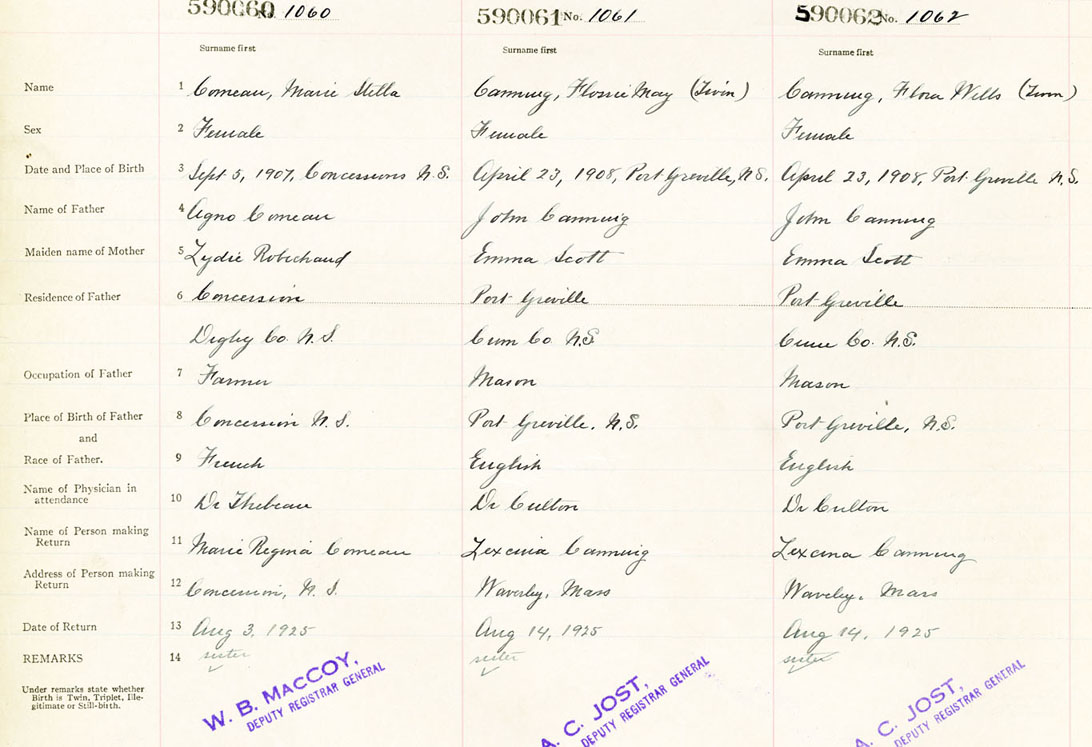 590060 No. 1060 590061 No. 1061 590062 No. 1062
Surname first Surname first Surname first
Name 1 Comeau, Marie Stella Canning, Flossie May (Twin) Canning, Flora Wells (Twin)
Sex 2 Female Female Female
Date and Place of Birth 3 Sept 5, 1907, Concessions N.S. April 23, 1908, Port Greville, N.S. April 23, 1908, Port Greville N.S.
Name of Father 4 Agno Comeau John Canning John Canning
Maiden name of Mother 5 Lydie Robichaud Emma Scott Emma Scott
Residence of Father 6 Concession Port Greville Port Greville
Digby Co. N.S. Cum Co N.S. Cum Co. N.S.
Occupation of Father 7 Farmer Mason Mason
Place of Birth of Father 8 Concession N.S. Port Greville, N.S. Port Greville, N.S.
and
Race of Father. 9 French English English
Name of Physician in
attendance 10 Dr Thebeau Dr Culton Dr Culton
Name of Person making
Return 11 Marie Regina Comeau Lexcina Canning Lexcina Canning
Address of Person making
Return 12 Concession, N.S. Waverley, Mass Waverley, Mass
Date of Return 13 Aug 3, 1925 Aug 14, 1925 Aug 14, 1925
REMARKS 14 sister sister sister
Under remarks state whether
Birth is Twin, Triplet, Ille-
gitimate or Still-birth.
W. B. MacCOY,
DEPUTY REGISTRAR GENERAL
A. C. JOST,
DEPUTY REGISTRAR GENERAL
A. C. JOST,
DEPUTY REGISTRAR GENERAL